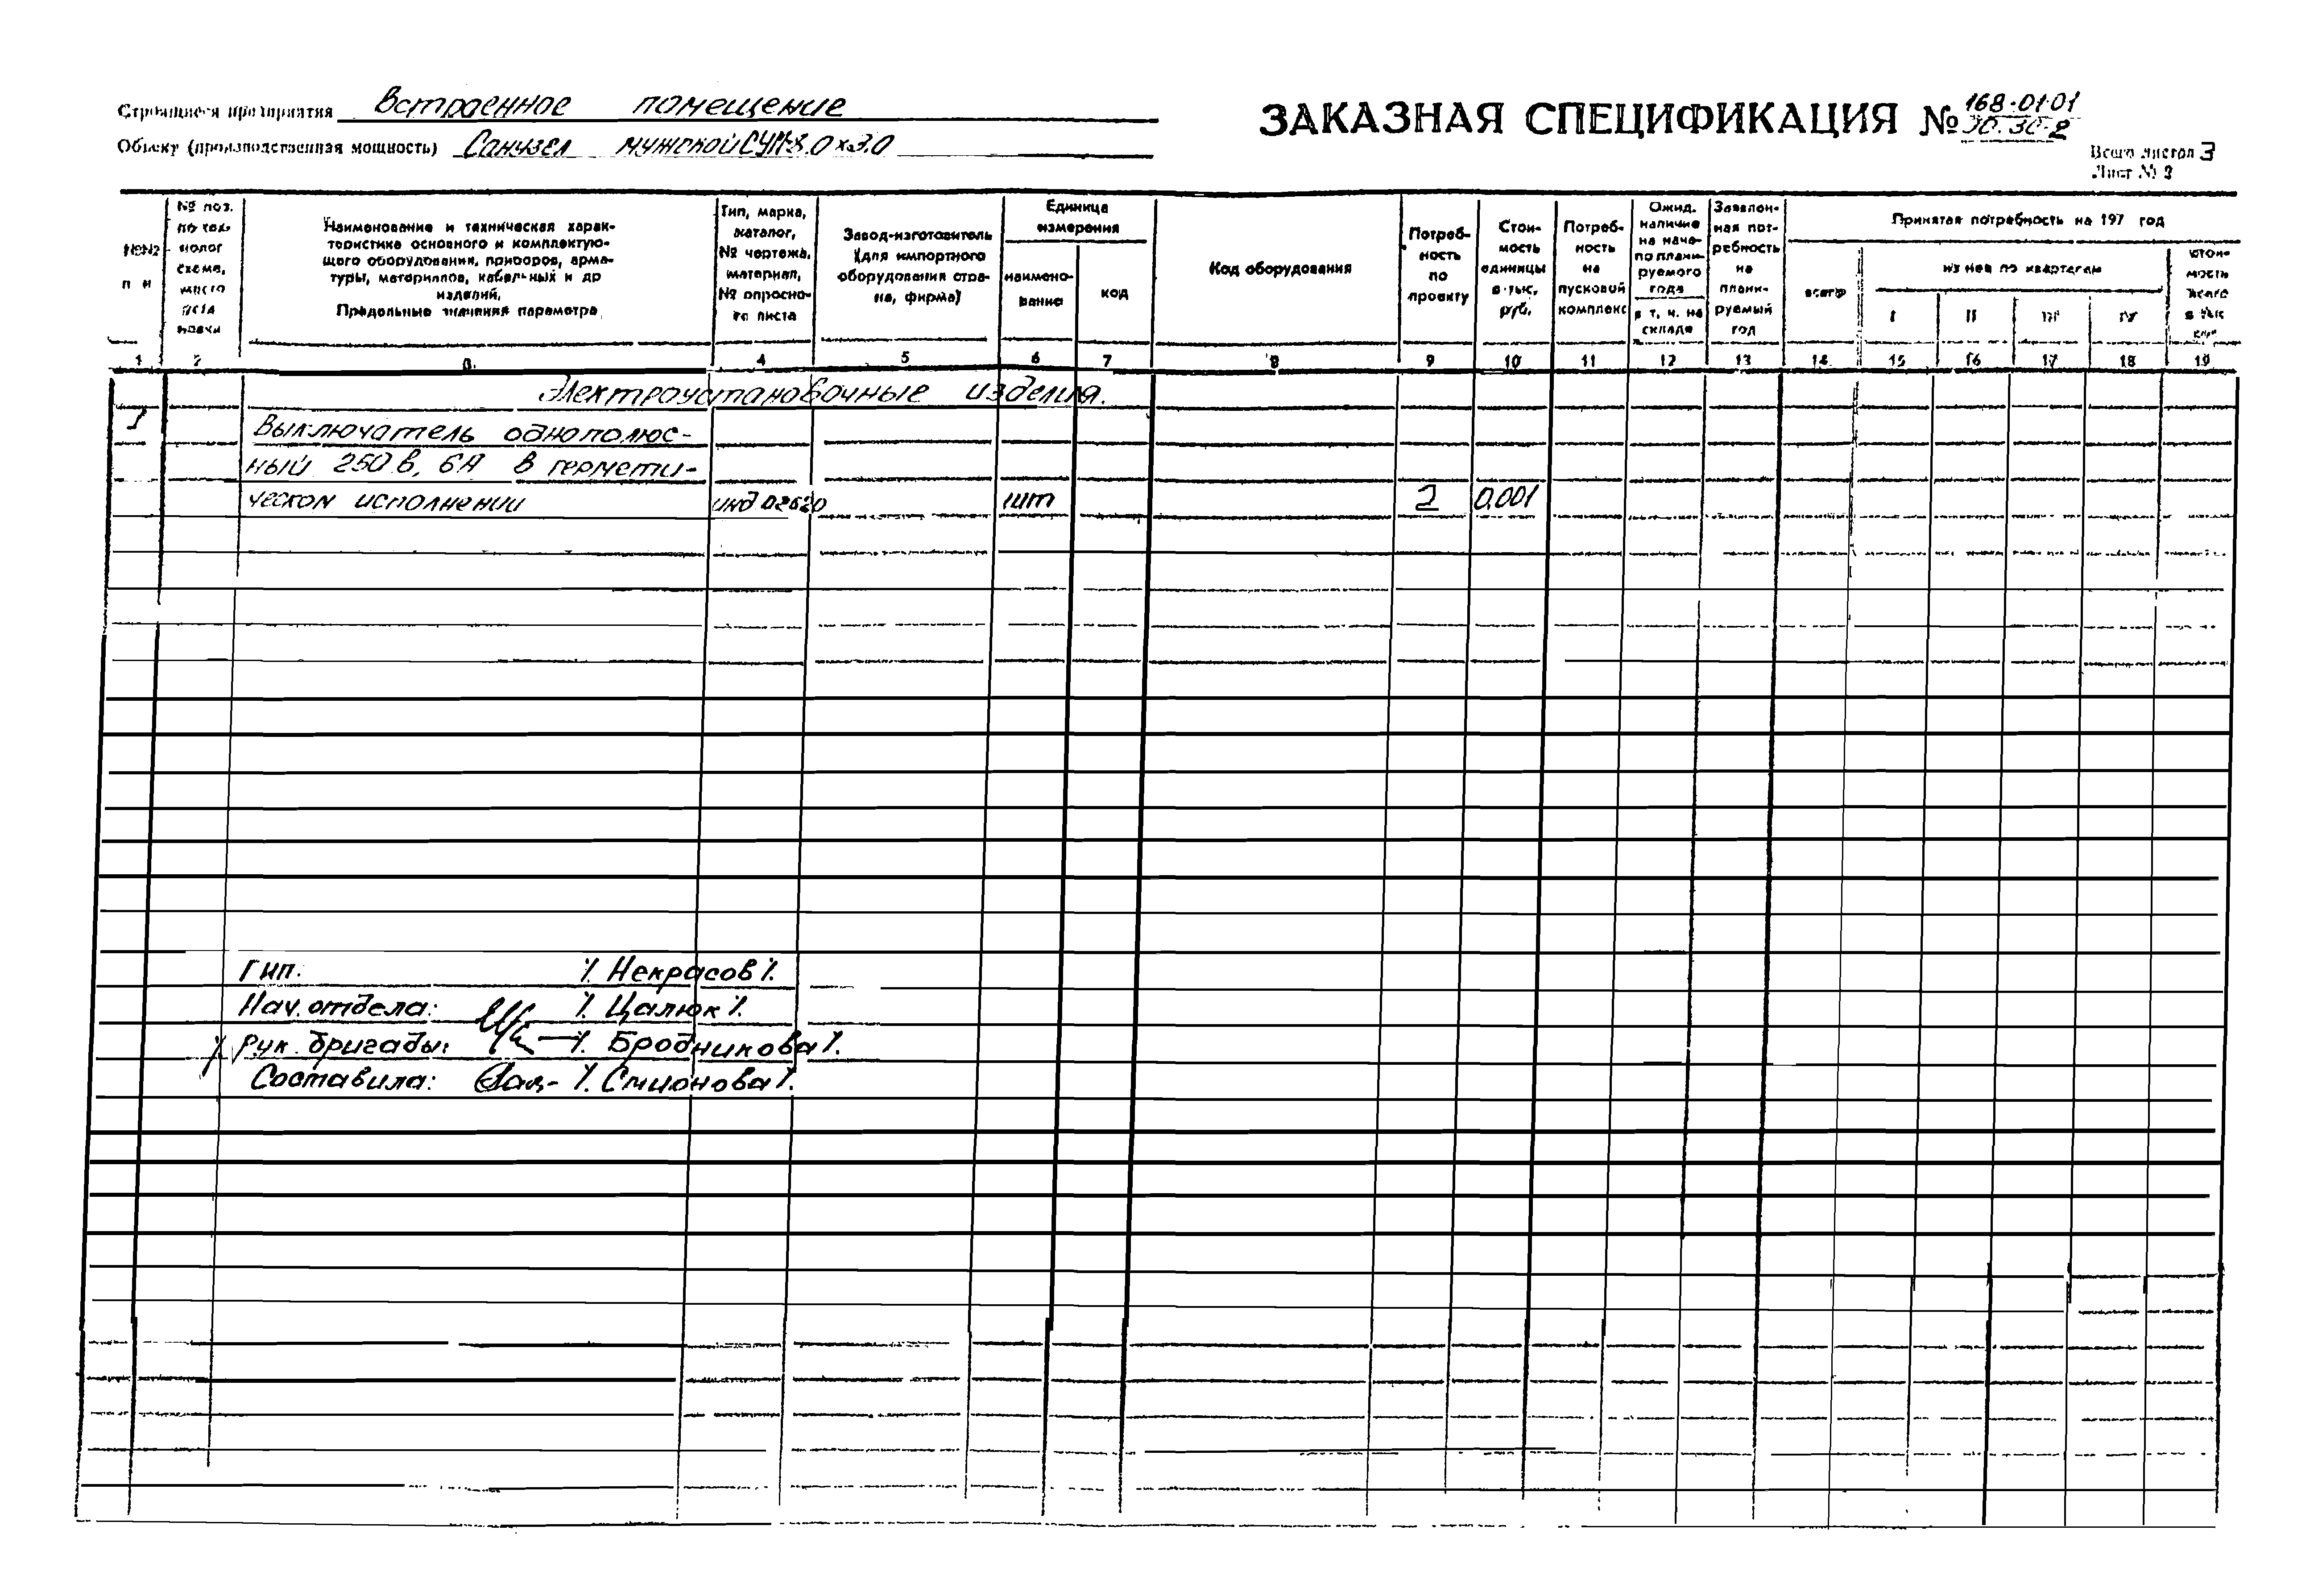 Строящиеся предприятия Встроенное помещение
ЗАКАЗНАЯ СПЕЦИФИКАЦИЯ № 168-01-01
Объект (производственная мощность) Санузел мужской СУМ-3.0х3.0
Всего листов 3
Лист № 3
№№ п п
№ поз.
по тех-
нолог
схеме,
место
уста
новки
Наименование и техническая харак-
теристика основного и комплектую-
щего оборудования, приборов, арма-
туры, материалов, кабельных и др
изделий.
Предельные значения параметра
Тип, марка,
каталог,
№ чертежа,
материал,
№ опросно-
го листа
Завод-изготовитель
(для импортного
оборудования стра-
на, фирма)
Единица
измерения
наимено-
вание
код
Код оборудования
Потреб-
ность
по
проекту
Стои-
мость
единицы
в тыс.
руб.
Потреб-
ность
на
пусковой
комплекс
Ожид.
наличие
на нача-
ло плани-
руемого
года
в т. ч. на
складе
Заявлен-
ная пот-
ребность
на
плани-
руемый
год
Принятая потребность на 197 год
всего
из нее по кварталам
I II III IV
стои-
мость
всего
в тыс
руб
1 2 3 4 5 6 7 8 9 10 11 12 13 14 15 16 17 18 19
Электроустановочные изделия.
1 Выключатель однополюс-
ный 250 в, 6А в гермети-
ческом исполнении инд 02620 шт 2 0.001
ГИП: /. Некрасов /.
Нач. отдела: /. Цалюк /.
Рук. бригады: /. Бродникова /.
Составила: /. Смионова /.